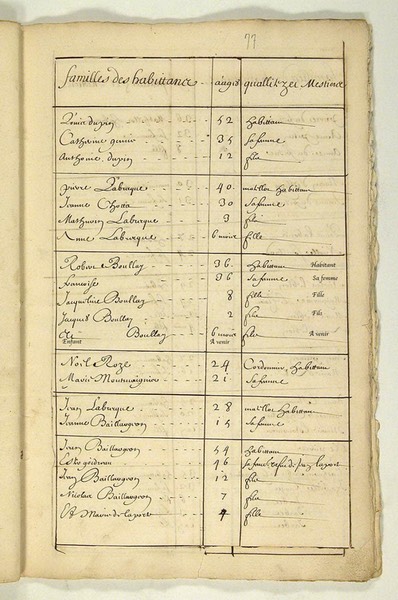 77
familles des habittans aagés quallitez et Mestiers
Louis dupin 52 habittan
Catherine 35 sa femme
Anthoine dupin 12 fils
pierre Labarque 40 habittan
Jeanne Chotta 30 sa femme
Mathurin Labarque 3 fils
Anne Labarque 6 mois fille
Robert Boullay 36 habittan Habitant
francoise 36 sa femme Sa femme
Jacqueline Boullay 8 fille Fille
Jacques Boullay 2 fils Fils
Boullay 6 mois fils A venir
Enfant A venir
Noël Roze 24 Cordonnier, habittan
Marie Montmaignier 21 sa femme
Jean Labarque 28 habittan
Jeanne Baillargeon 15 sa femme
Jean Baillargeon 54 habittan
46 sa femme
Jean Baillargeon 12 fils
Nicolas Baillargeon 7 fils
Marie de laporte 4 fille